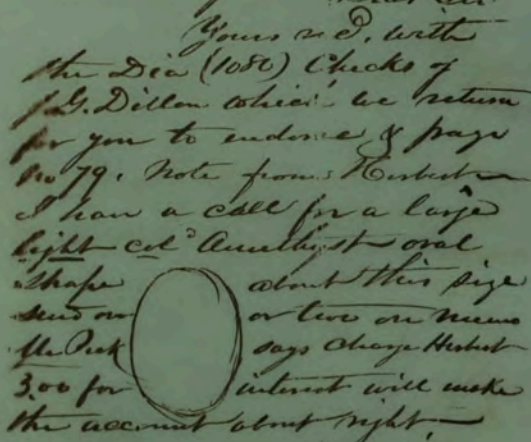 Yours rec'd. with
the Dia (1080) Checks of
J.G. Dillon which we return
for you to endorse & page
No 79. Note from Herbert
I have a call for a large
light col'd Amethyst oval
shape about this size
send one or two on memo
Mr Peck says charge Herbert
3.00 for interest will make
the account about right.